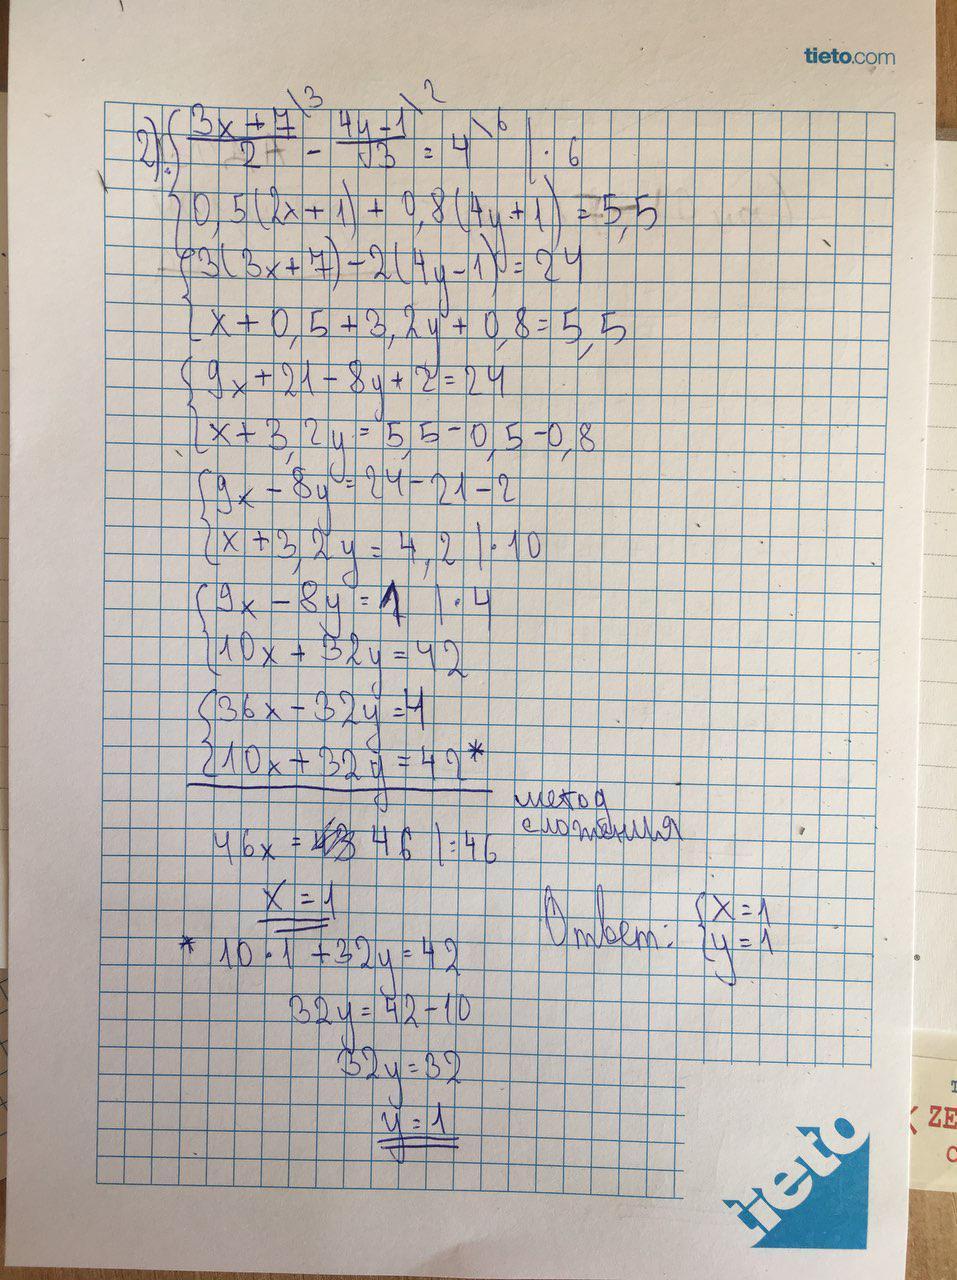 tieto.com
2) { (3x + 7)/2 \3 - (4y - 1)/3 \2 = 4 \6 | · 6
0,5(2x + 1) + 0,8(4y + 1) = 5,5
{ 3(3x + 7) - 2(4y - 1) = 24
x + 0,5 + 3,2y + 0,8 = 5,5
{ 9x + 21 - 8y + 2 = 24
x + 3,2y = 5,5 - 0,5 - 0,8
{ 9x - 8y = 24 - 21 - 2
x + 3,2y = 4,2 | · 10
{ 9x - 8y = 1 | · 4
10x + 32y = 42
{ 36x - 32y = 4
10x + 32y = 42 *
метод
сложения
46x = 46 | : 46
x = 1
Ответ: { x = 1
y = 1
* 10 · 1 + 32y = 42
32y = 42 - 10
32y = 32
y = 1
tieto
ZE